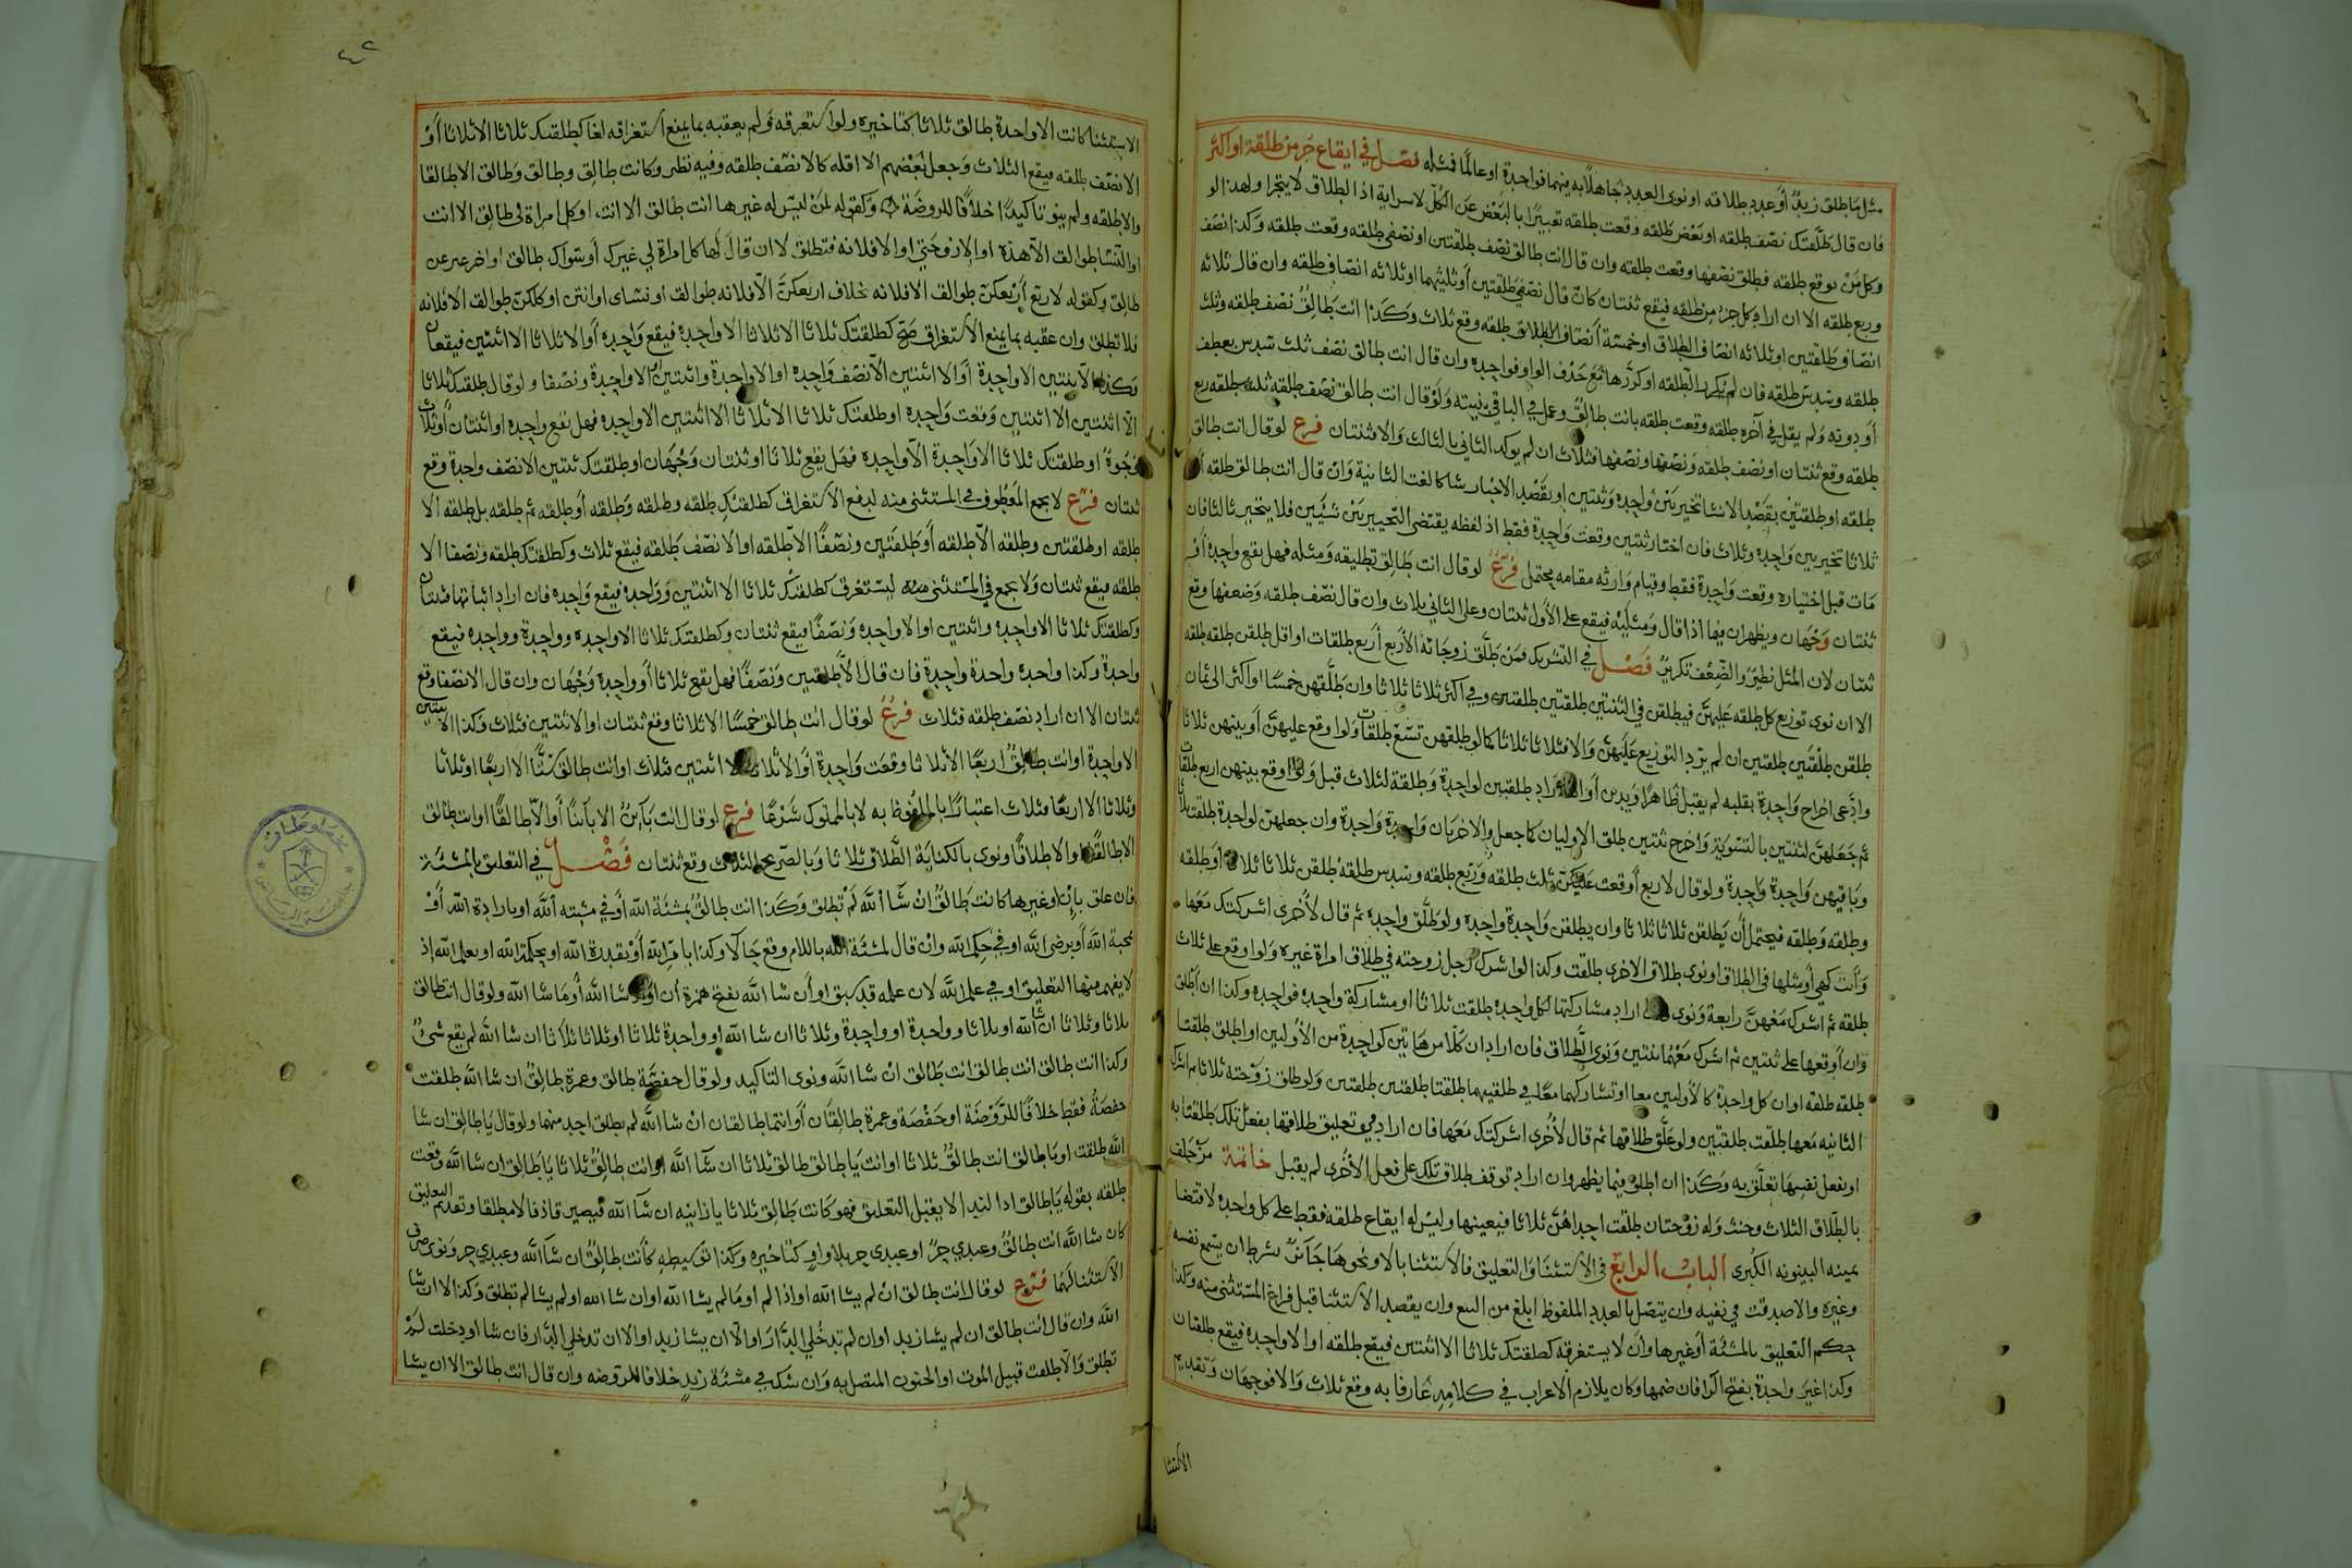 مثل ما طلق زيد أو عدد طلاقه او نوى العدد جاهلا به منهما فواحدة او عالما فمثله فصل في ايقاع جزء من طلقة او اكثر
فان قال طلقتك نصف طلقه او بعض طلقه وقعت طلقه تعبيرا بالبعض عن الكل لا سراية اذ الطلاق لا يتجزا ولهذا لو
وكل من يوقع طلقه فطلق نصفها وقعت طلقه وان قال انت طالق نصف طلقتين او نصفي طلقه وقعت طلقه وكذا نصف
وربع طلقه الا ان اراد كل جزء من طلقه فيقع ثنتان كان قال نصفي طلقتين أو ثلثيهما او ثلاثه انصاف طلقه وان قال ثلاثه
انصاف طلقتين او ثلاثه انصاف الطلاق او خمسة أنصاف الطلاق طلقه وقع ثلاث وكذا انت طالق نصف طلقه وثلث
طلقه وسدس طلقه فان لم يكرر الطلقه او كررها مع حذف الواو فواحده وان قال انت طالق نصف ثلث سدس بعطف
أو دونه ولم يقل في آخره طلقه وقعت طلقه بانت طالق وعمل في الباقي بنيته ولو قال انت طالق نصف طلقه ثلث طلقه ربع
طلقه وقع ثنتان او نصف طلقه ونصفها ونصفها فثلاث ان لم يوكد الثاني بالثالث والا فثنتان فرع لو قال انت طالق
طلقه او طلقتين بقصد الانشا تخير بين واحده وثنتين او بقصد الاخبار شاكا لغت الثانية وان قال انت طالق طلقه او
ثلاثا تخير بين واحدة وثلاث فان اختار ثنتين وقعت واحدة فقط اذ لفظه يقتضي التخيير بين شيئين فلا يتخير ثالثا فان
مات قبل اختياره وقعت واحدة فقط وقيام وارثه مقامه يحتمل فرع لو قال انت طالق تطليقه ومثله فهل يقع واحدة أو
ثنتان وجهان ويظهران فيما اذا قال ومثليه فيقع على الأول ثنتان وعلى الثاني ثلاث وان قال نصف طلقه وضعفها وقع
ثنتان لان المثل نظير والضعف تكرير فصل في التشريك فمن طلق زوجاته الأربع أربع طلقات او اقل طلقن طلقه طلقه
الا ان نوى توزيع كل طلقه عليهن فيطلقن في الثنتين طلقتين طلقتين وفي اكثر ثلاثا ثلاثا وان طلقهن خمسا او اكثر الى ثمان
طلقن طلقتين طلقتين ان لم يرد التوزيع عليهن والا فثلاثا ثلاثا كما لو طلقهن تسع طلقات ولو اوقع عليهن أو بينهن ثلاثا
وادعى اخراج واحدة بقلبه لم يقبل ظاهرا ويدين أو اراد طلقتين لواحدة وطلقة لثلاث قبل ولو اوقع بينهن اربع طلقات
ثم جعلهن لثنتين بالتسوية واخرج ثنتين طلق الاوليان كما جعل والاخريان واحدة واحدة وان جعلهن لواحدة طلقت ثلاثا
وباقيهن واحدة واحدة ولو قال لاربع أوقعت عليكن ثلث طلقه وربع طلقه وسدس طلقه طلقن ثلاثا ثلاثا او طلقه
وطلقه وطلقه فيحتمل أن يطلقن ثلاثا ثلاثا وان يطلقن واحدة واحده ولو طلق واحدة ثم قال لأخرى اشركتك معها
وأنت كهي أو مثلها في الطلاق ونوى طلاق الاخرى طلقت وكذا لو اشرك رجل زوجته في طلاق امراة غيره ولو اوقع على ثلاث
طلقه ثم اشرك معهن رابعة ونوى اراد مشاركتها لكل واحدة طلقت ثلاثا او مشاركة واحدة فواحده وكذا ان أطلق
وان أوقعها على ثنتين ثم اشرك معهما ثنتين ونوى الطلاق فان اراد ان كلا من هاتين كواحدة من الأوليين او اطلق طلقتا
طلقه طلقه او ان كل واحدة كالأوليين معا او تشاركهما معا في طلقتيهما طلقتا طلقتين طلقتين ولو طلق زوجته ثلاثا ثم اشرك
الثانيه معها طلقت طلقتين ولو علق طلاقها ثم قال لأخرى اشركتك معها فان اراد في تعليق طلاقها بفعل تلك طلقتا به
او بفعل نفسها تعلق به وكذا ان اطلق فيما يظهر وان اراد توقف طلاق تلك على فعل الأخرى لم يقبل خاتمة من حلف
بالطلاق الثلاث وحنث وله زوجتان طلقت احداهن ثلاثا فيعينها وليس له ايقاع طلقه فقط على كل واحدة لاقتضا
يمينه البينونه الكبرى الباب الرابع في الاستثنا والتعليق فالاستثنا بالا ونحوها جائز بشرط ان يسمع نفسه
وغيره والا صدقت في نفيه وان يتصل بالعدد الملفوظ ابلغ من البيع وان يقصد الاستثنا قبل فراغ المستثنى منه وكذا
حكم التعليق بالمشئة أو غيرها وأن لا يستغرقه كطلقتك ثلاثا الا اثنتين فيقع طلقه او الا واحدة فيقع طلقتان
وكذا غير واحدة بفتح الرا فان ضمها وكان يلازم الاعراب في كلامه عارفا به وقع ثلاث والا فوجهان وتقديم
الاستثنا
٤٢
الاستثنا كانت الا واحدة طالق ثلاثا كتاخيره ولو استغرقه ولم يعقبه بما يمنع استغراقه لغا كطلقتك ثلاثا الا ثلاثا أو
الا نصف طلقه فيقع الثلاث وجعل بعضهم الا اقله كالا نصف طلقه وفيه نظر وكانت طالق وطالق وطالق الا طالقا
والا طلقه ولم ينو تاكيدا خلافا للروضة وكقوله لمن ليس له غيرها انت طالق الا انت او كل امراة لي طالق الا انت
او النسا طوالق الا هذه او الا زوجتي او الا فلانه فتطلق لا ان قال لها كل امراة لي غيرك أو سواك طالق او اخر غير عن
طالق وكقوله لاربع أربعكن طوالق الا فلانه خلاف اربعكن الا فلانه طوالق او نساى او انتن او كلكن طوالق الا فلانه
فلا تطلق وان عقبه بما يمنع الاستغراق صح كطلقتك ثلاثا الا ثلاثا الا واحدة فيقع واحدة أو الا ثلاثا الا اثنتين فيقعان
وكذا الا ثنتين الا واحدة أو الا اثنتين الا نصف واحده او الا واحدة واثنتين او الا واحدة ونصفا ولو قال طلقتك ثلاثا
الا اثنتين الا اثنتين وقعت واحدة او طلقتك ثلاثا الا ثلاثا الا اثنتين الا واحدة فهل تقع واحدة او اثنتان أو ثلاث
وجوه او طلقتك ثلاثا الا واحدة الا واحده فهل يقع ثلاثا او ثنتان وجهان او طلقتك ثنتين الا نصف واحدة وقع
ثنتان فرع لا يجمع المعطوف في المستثنى منه لدفع الاستغراق كطلقتك طلقه وطلقه وطلقه أو طلقه ثم طلقه بل طلقه الا
طلقه او طلقتين وطلقه الا طلقه أو طلقتين ونصفا الا طلقه او الا نصف طلقه فيقع ثلاث وكطلقتك طلقه ونصفا الا
طلقه فيقع ثنتان ولا يجمع في المستثنى منه ليستغرق كطلقتك ثلاثا الا اثنتين وواحدة فيقع واحده فان اراد اثباتها فثنتان
وكطلقتك ثلاثا الا واحدة واثنتين او الا واحده ونصفا فيقع ثنتان وكطلقتك ثلاثا الا واحده وواحدة وواحده فيقع
واحدة وكذا واحدة واحدة واحدة فان قال الا طلقتين ونصفا فهل يقع ثلاثا أو واحدة وجهان وان قال الا نصفا وقع
ثنتان الا ان اراد نصف طلقه فثلاث فرع لو قال انت طالق خمسا الا ثلاثا وقع ثنتان او الا ثنتين فثلاث وكذا الا ثنتين
الا واحدة او انت طالق اربعا الا ثلاثا وقعت واحدة أو الا ثلاثا الا اثنتين فثلاث او انت طالق ستا الا اربعا او ثلاثا
وثلاثا الا اربعا فثلاث اعتبارا بالملفوظ به لا بالمملوك شرعا فرع لو قال انت بائن الا بائنا أو الا طالقا او انت طالق
الا طالقا او الا طلاقا ونوى بالكناية الطلاق ثلاثا وبالصريح الثلاث وقع ثنتان فصل في التعليق بالمشئة
فان علق بان او غيرها كانت طالق ان شا الله لم تطلق وكذا انت طالق بمشئة الله أو في مشيته الله او بارادة الله أو
بمحبة الله أو برضى الله او في حكم الله وان قال لمشئة الله باللام وقع حالا وكذا بامر الله أو بقدرة الله او بحكمة الله او بعلم الله إذ
لا يفهم منها التعليق او في علم الله لان علمه قد سبق او أن شا الله بفتح همزة أن او اذ شا الله أو ما شا الله ولو قال انت طالق
ثلاثا وثلاثا ان شا الله او ثلاثا وواحدة او واحدة وثلاثا ان شا الله او واحدة ثلاثا او ثلاثا ثلاثا ان شا الله لم يقع شئ
وكذا انت طالق انت طالق انت طالق ان شا الله ونوى التاكيد ولو قال حفصة طالق وعمرة طالق ان شا الله طلقت
حفصة فقط خلافا للروضة او حفصة وعمرة طالقان أو انتما طالقان ان شا الله لم يطلق احد منهما ولو قال يا طالق ان شا
الله طلقت او يا طالق انت طالق ثلاثا او انت يا طالق طالق ثلاثا ان شا الله او انت طالق ثلاثا يا طالق ان شا الله وقعت
طلقه بقوله يا طالق اذ الندا لا يقبل التعليق فهو كانت طالق ثلاثا يا زانيه ان شا الله فيصير قاذفا لا مطلقا وتقديم التعليق
كان شا الله انت طالق وعبدي حر او عبدي حر بلا واو كتاخيره وكذا توسيطه كأنت طالق ان شا الله وعبدي حر ونوى صرف
الاستثنا لهما فروع لو قال انت طالق ان لم يشا الله او اذا لم او ما لم يشا الله او ان شا الله او لم يشا لم تطلق وكذا الا ان شا
الله وان قال انت طالق ان لم يشا زيد او ان لم تدخلي الدار او الا ان يشا زيد او الا ان تدخلي الدار فان شا او دخلت لم
تطلق والا طلقت قبيل الموت او الجنون المتصل به وان شك في مشئة زيد خلافا للروضه وان قال انت طالق الا ان يشا